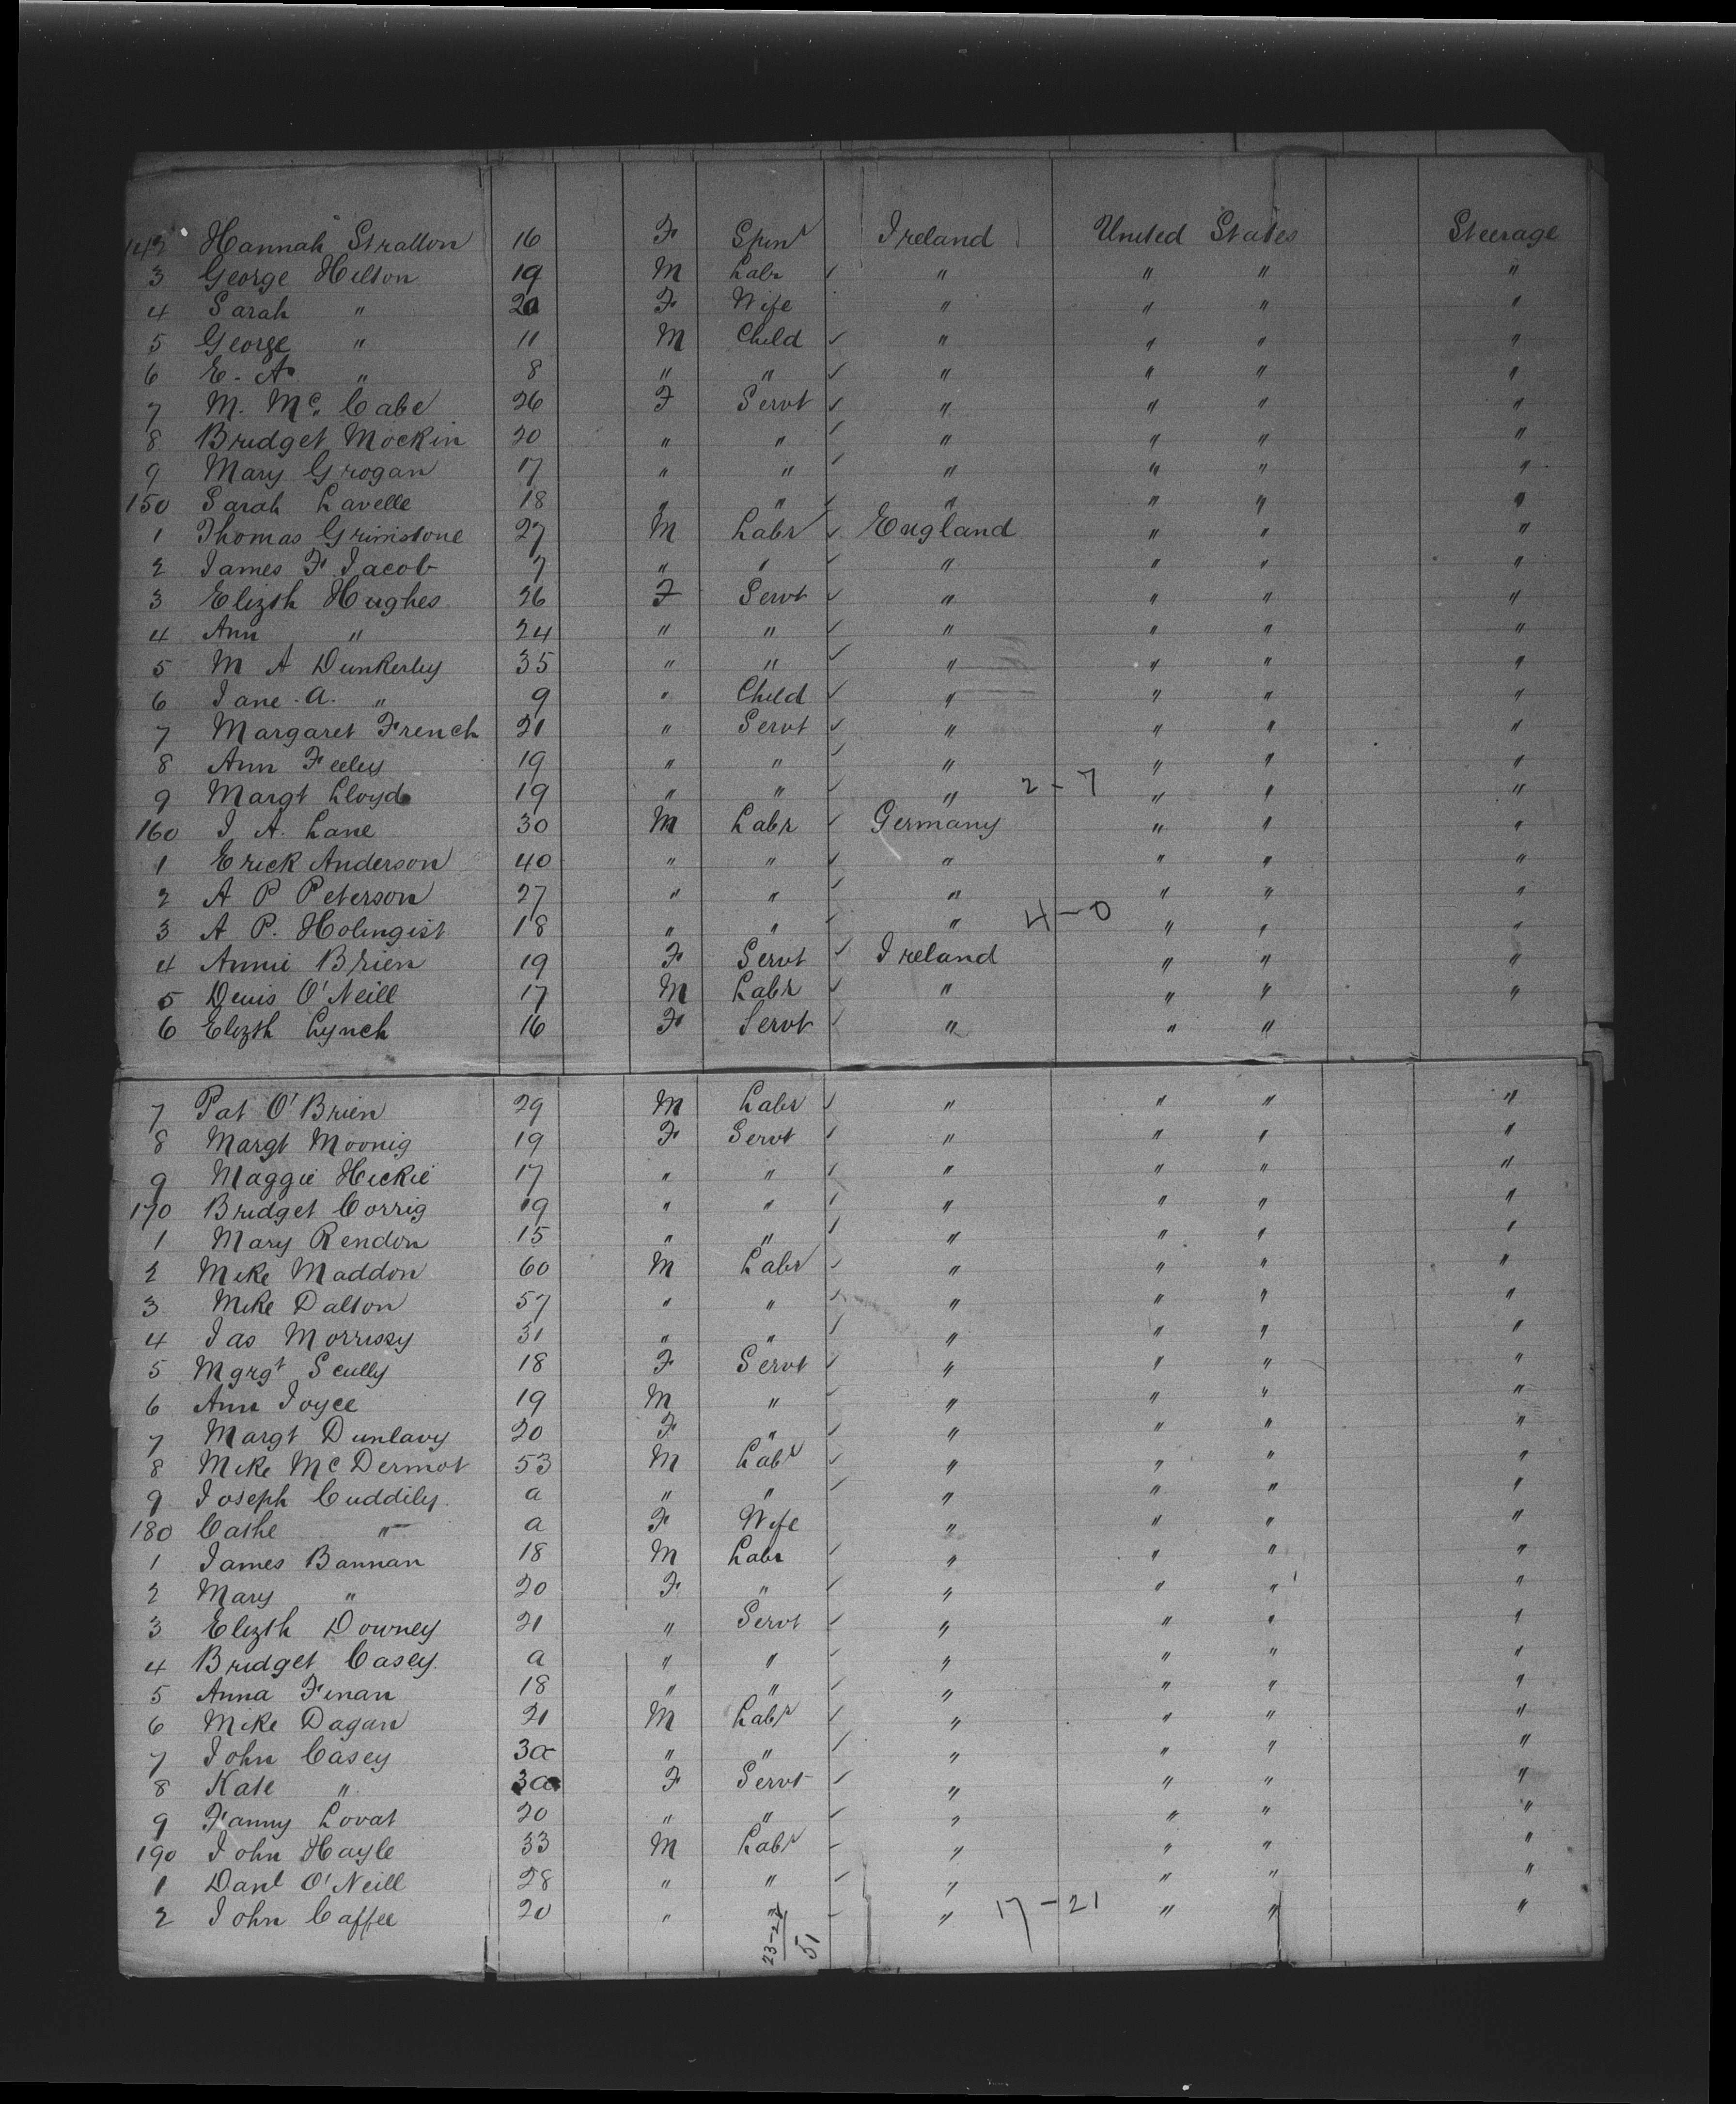 142 Hannah Stratton 16 F Spinr Ireland United States Steerage
3 George Hilton 19 M Labr ✓ " " " "
4 Sarah " 20 F Wife " " " "
5 George " 11 M Child ✓ " " " "
6 E. A. " 8 " " ✓ " " " "
7 M. Mc. Cabe 26 F Servt ✓ " " " "
8 Bridget Mockin 20 " " ✓ " " " "
9 Mary Grogan 17 " " ✓ " " " "
150 Sarah Lavelle 18 " " ✓ " " " "
1 Thomas Grimstone 27 M Labr ✓ England " " "
2 James F Jacob 7 " " ✓ " " " "
3 Elizth Hughes 26 F Servt ✓ " " " "
4 Ann " 24 " " ✓ " " " "
5 M A Dunkerley 35 " " ✓ " " " "
6 Jane A. " 9 " Child ✓ " " " "
7 Margaret French 21 " Servt ✓ " " " "
8 Ann Feeley 19 " " ✓ " " " "
9 Margt Lloyd 19 " " ✓ " 2-7 " " "
160 J. A. Lane 30 M Labr ✓ Germany " " "
1 Erick Anderson 40 " " ✓ " " " "
2 A P Peterson 27 " " ✓ " " " "
3 A P. Holmgist 18 " " ✓ " 4-0 " " "
4 Annie Brien 19 F Servt ✓ Ireland " " "
5 Denis O'Neill 17 M Labr ✓ " " " "
6 Elizth Lynch 16 F Servt ✓ " " "
7 Pat O'Brien 29 M Labr ✓ " " " "
8 Margt Moonig 19 F Servt ✓ " " " "
9 Maggie Hickie 17 " " ✓ " " " "
170 Bridget Corrig 19 " " ✓ " " " "
1 Mary Rendon 15 " " ✓ " " " "
2 Mike Maddon 60 M Labr ✓ " " " "
3 Mike Dalton 57 " " ✓ " " " "
4 Jas Morrissy 31 " " ✓ " " " "
5 Mgrgt Scully 18 F Servt ✓ " " " "
6 Ann Joyce 19 M " ✓ " " " "
7 Margt Dunlavy 20 F " ✓ " " " "
8 Mike McDermot 53 M Labr ✓ " " " "
9 Joseph Cuddily a " " ✓ " " " "
180 Cathe " a F Wife " " " "
1 James Bannan 18 M Labr ✓ " " " "
2 Mary " 20 F " ✓ " " " "
3 Elizth Downey 21 " Servt ✓ " " " "
4 Bridget Casey a " " ✓ " " " "
5 Anna Finan 18 " " ✓ " " " "
6 Mike Dagan 21 M Labr ✓ " " " "
7 John Casey 30 " " ✓ " " " "
8 Kate " 30 F Servt ✓ " " " "
9 Fanny Lovat 20 " " ✓ " " " "
190 John Hayle 33 M Labr ✓ " " " "
1 Danl O'Neill 28 " " ✓ " " " "
2 John Caffee 20 " ✓ " 17-21 " " "
51